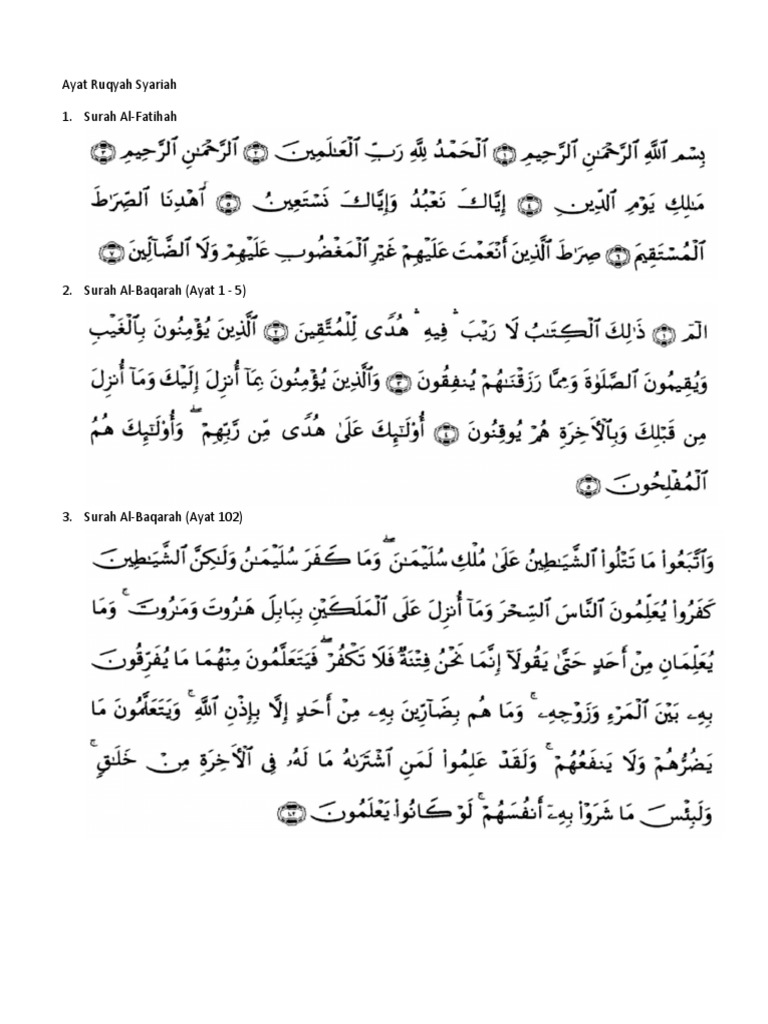 Ayat Ruqyah Syariah
1. Surah Al-Fatihah
بِسْمِ ٱللَّهِ ٱلرَّحْمَٰنِ ٱلرَّحِيمِ ۝١ ٱلْحَمْدُ لِلَّهِ رَبِّ ٱلْعَٰلَمِينَ ۝٢ ٱلرَّحْمَٰنِ ٱلرَّحِيمِ ۝٣
مَٰلِكِ يَوْمِ ٱلدِّينِ ۝٤ إِيَّاكَ نَعْبُدُ وَإِيَّاكَ نَسْتَعِينُ ۝٥ ٱهْدِنَا ٱلصِّرَٰطَ
ٱلْمُسْتَقِيمَ ۝٦ صِرَٰطَ ٱلَّذِينَ أَنْعَمْتَ عَلَيْهِمْ غَيْرِ ٱلْمَغْضُوبِ عَلَيْهِمْ وَلَا ٱلضَّآلِّينَ ۝٧
2. Surah Al-Baqarah (Ayat 1 - 5)
الٓمٓ ۝١ ذَٰلِكَ ٱلْكِتَٰبُ لَا رَيْبَ ۛ فِيهِ ۛ هُدًى لِّلْمُتَّقِينَ ۝٢ ٱلَّذِينَ يُؤْمِنُونَ بِٱلْغَيْبِ
وَيُقِيمُونَ ٱلصَّلَوٰةَ وَمِمَّا رَزَقْنَٰهُمْ يُنفِقُونَ ۝٣ وَٱلَّذِينَ يُؤْمِنُونَ بِمَآ أُنزِلَ إِلَيْكَ وَمَآ أُنزِلَ
مِن قَبْلِكَ وَبِٱلْءَاخِرَةِ هُمْ يُوقِنُونَ ۝٤ أُو۟لَٰٓئِكَ عَلَىٰ هُدًى مِّن رَّبِّهِمْ ۖ وَأُو۟لَٰٓئِكَ هُمُ
ٱلْمُفْلِحُونَ ۝٥
3. Surah Al-Baqarah (Ayat 102)
وَٱتَّبَعُوا۟ مَا تَتْلُوا۟ ٱلشَّيَٰطِينُ عَلَىٰ مُلْكِ سُلَيْمَٰنَ ۖ وَمَا كَفَرَ سُلَيْمَٰنُ وَلَٰكِنَّ ٱلشَّيَٰطِينَ
كَفَرُوا۟ يُعَلِّمُونَ ٱلنَّاسَ ٱلسِّحْرَ وَمَآ أُنزِلَ عَلَى ٱلْمَلَكَيْنِ بِبَابِلَ هَٰرُوتَ وَمَٰرُوتَ ۚ وَمَا
يُعَلِّمَانِ مِنْ أَحَدٍ حَتَّىٰ يَقُولَآ إِنَّمَا نَحْنُ فِتْنَةٌ فَلَا تَكْفُرْ ۖ فَيَتَعَلَّمُونَ مِنْهُمَا مَا يُفَرِّقُونَ
بِهِۦ بَيْنَ ٱلْمَرْءِ وَزَوْجِهِۦ ۚ وَمَا هُم بِضَآرِّينَ بِهِۦ مِنْ أَحَدٍ إِلَّا بِإِذْنِ ٱللَّهِ ۚ وَيَتَعَلَّمُونَ مَا
يَضُرُّهُمْ وَلَا يَنفَعُهُمْ ۚ وَلَقَدْ عَلِمُوا۟ لَمَنِ ٱشْتَرَىٰهُ مَا لَهُۥ فِى ٱلْءَاخِرَةِ مِنْ خَلَٰقٍ ۚ
وَلَبِئْسَ مَا شَرَوْا۟ بِهِۦٓ أَنفُسَهُمْ ۚ لَوْ كَانُوا۟ يَعْلَمُونَ ۝١٠٢